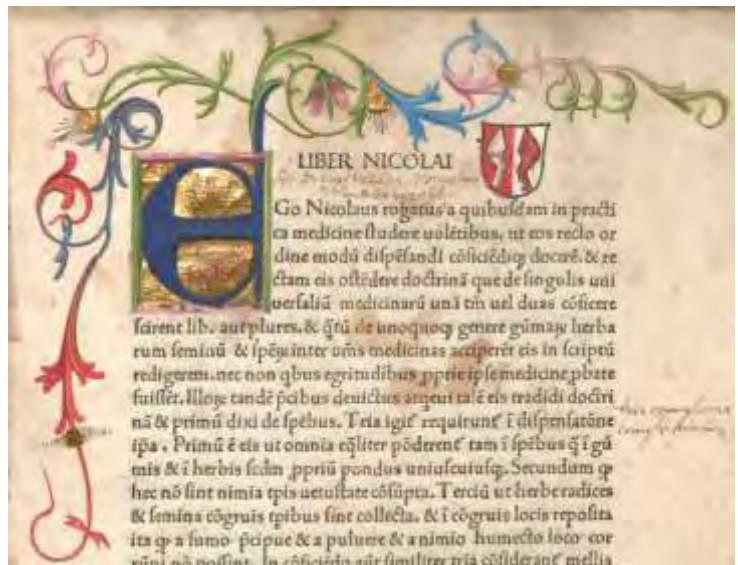 LIBER NICOLAI
EGo Nicolaus rogatus a quibusdam in practi
ca medicine studere uolētibus, ut eos recto or
dine modū dispēsandi cōficiēdiq; docerē. & re
ctam eis ostēdere doctrinā que de singulis uni
uersaliū medicinarū unā tm̄ uel duas cōficere
scirent lib. aut plures. & q̄tū de unoquoq; genere gūmaꝝ herba
rum seminū & spēꝝ inter om̄s medicinas acciperēt eis in scriptū
redigerem. nec non qbus egritudibus ꝓprie ipse medicine ꝓbate
fuissēt. Illoꝝ tandē p̄cibus deuictus arqeui talē eis tradidi doctri
nā & primū dixi de spēbus. Tria igit᷑ requirunt᷑ ī dispensatōne
ip̄a. Primū ē eis ut omnia eq̄liter pōderent᷑ tam ī spēbus q̄ ī gū
mis & ī herbis scd̄m ꝓpriū pondus uniuscuiusq;. Secundum ꝙ
hec nō sint nimia tp̄is uetustate cōsūpta. Terciū ut herbe radices
& semina cōgruis tp̄ibus sint collecta. & ī cōgruis locis reposita
ita ꝙ a fumo p̄cipue & a puluere & a nimio humecto loco cor